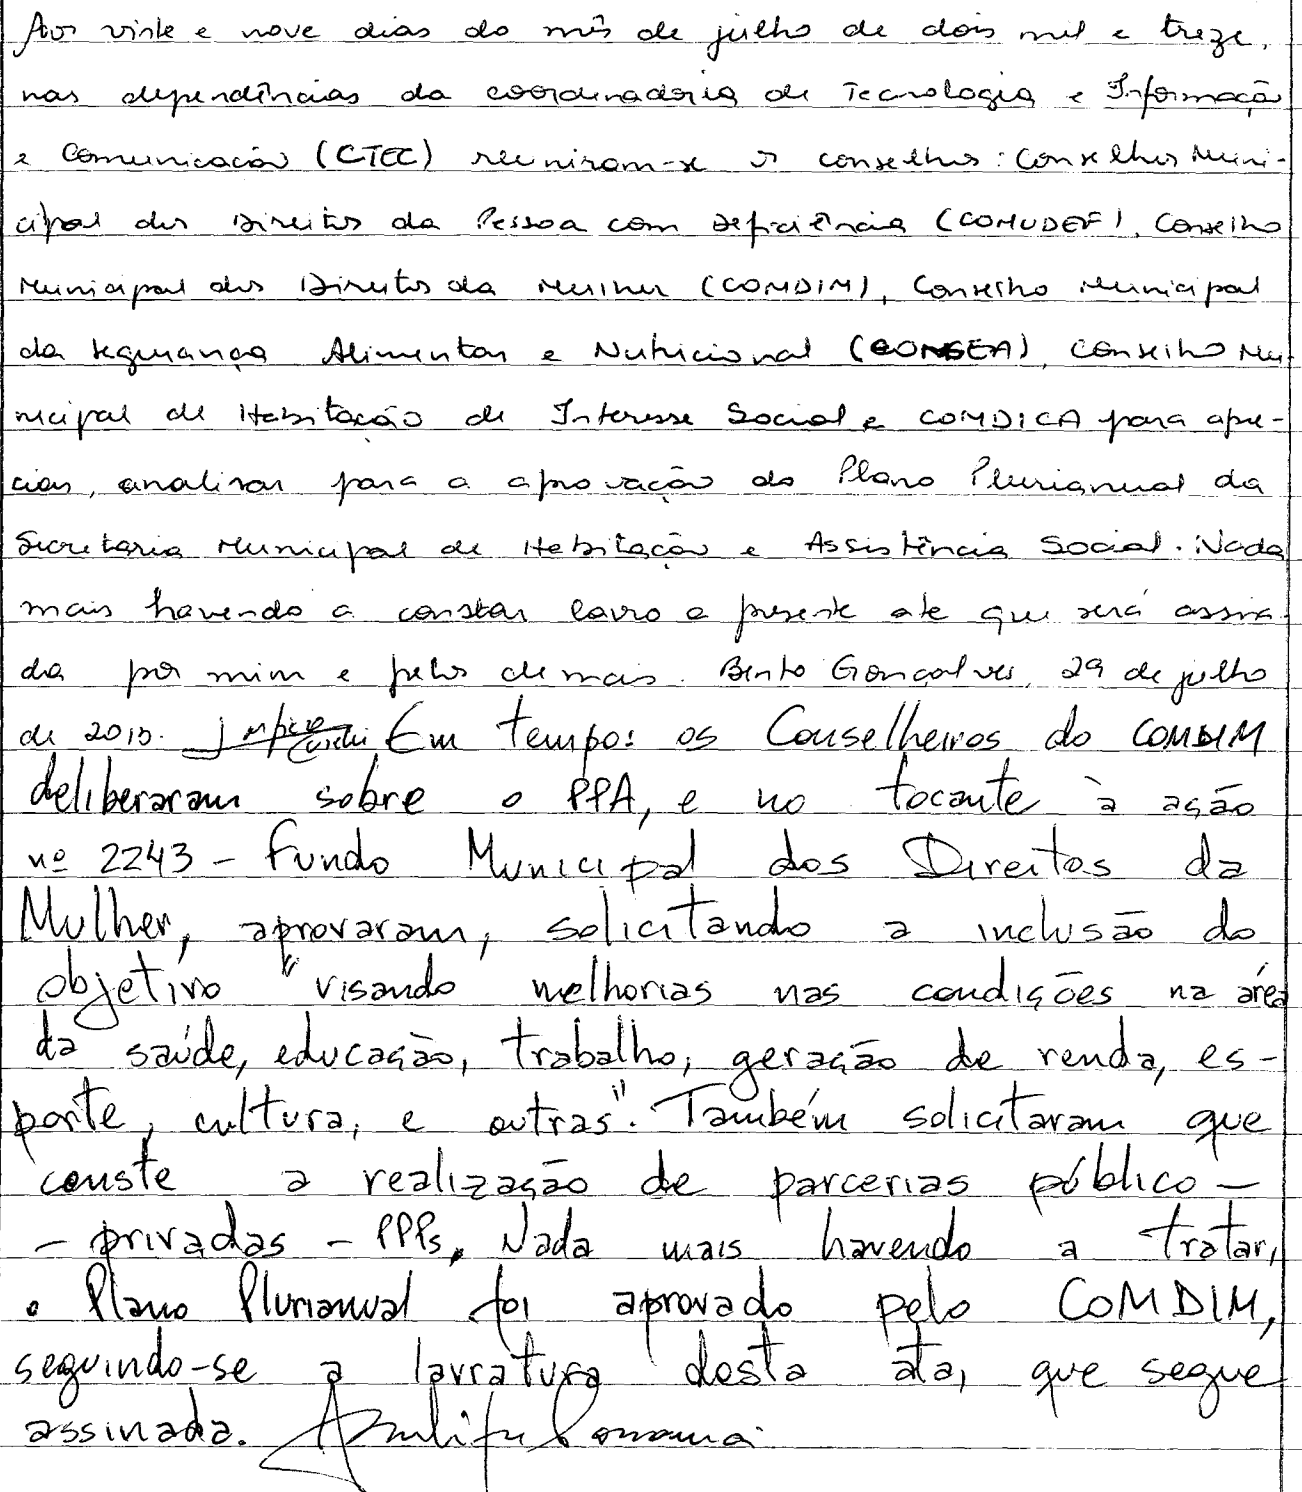 Aos vinte e nove dias do mês de julho de dois mil e treze,
nas dependências da coordenadoria de Tecnologia e Informação
e Comunicação (CTEC) reuniram-se os conselhos: Conselho Muni-
cipal dos Direitos da Pessoa com Deficiência (COMUDEF), Conselho
Municipal dos Direitos da Mulher (COMDIM), Conselho Municipal
da Segurança Alimentar e Nutricional (CONSEA), Conselho Mu-
nicipal de Habitação de Interesse Social e COMDICA para apre-
ciar, analisar para a aprovação do Plano Plurianual da
Secretaria Municipal de Habitação e Assistência Social. Nada
mais havendo a constar lavro a presente ate que será assina
da por mim e pelos demais. Bento Gonçalves, 29 de julho
de 2013. Em tempo: os Conselheiros do COMDIM
deliberaram sobre o PPA, e no tocante à ação
nº 2243 - Fundo Municipal dos Direitos da
Mulher, aprovaram, solicitando a inclusão do
objetivo "visando melhorias nas condições na área
da saúde, educação, trabalho, geração de renda, es-
porte, cultura, e outras". Também solicitaram que
conste a realização de parcerias público -
- privadas - PPPs. Nada mais havendo a tratar,
o Plano Plurianual foi aprovado pelo COMDIM,
seguindo-se a lavratura desta ata, que segue
assinada.